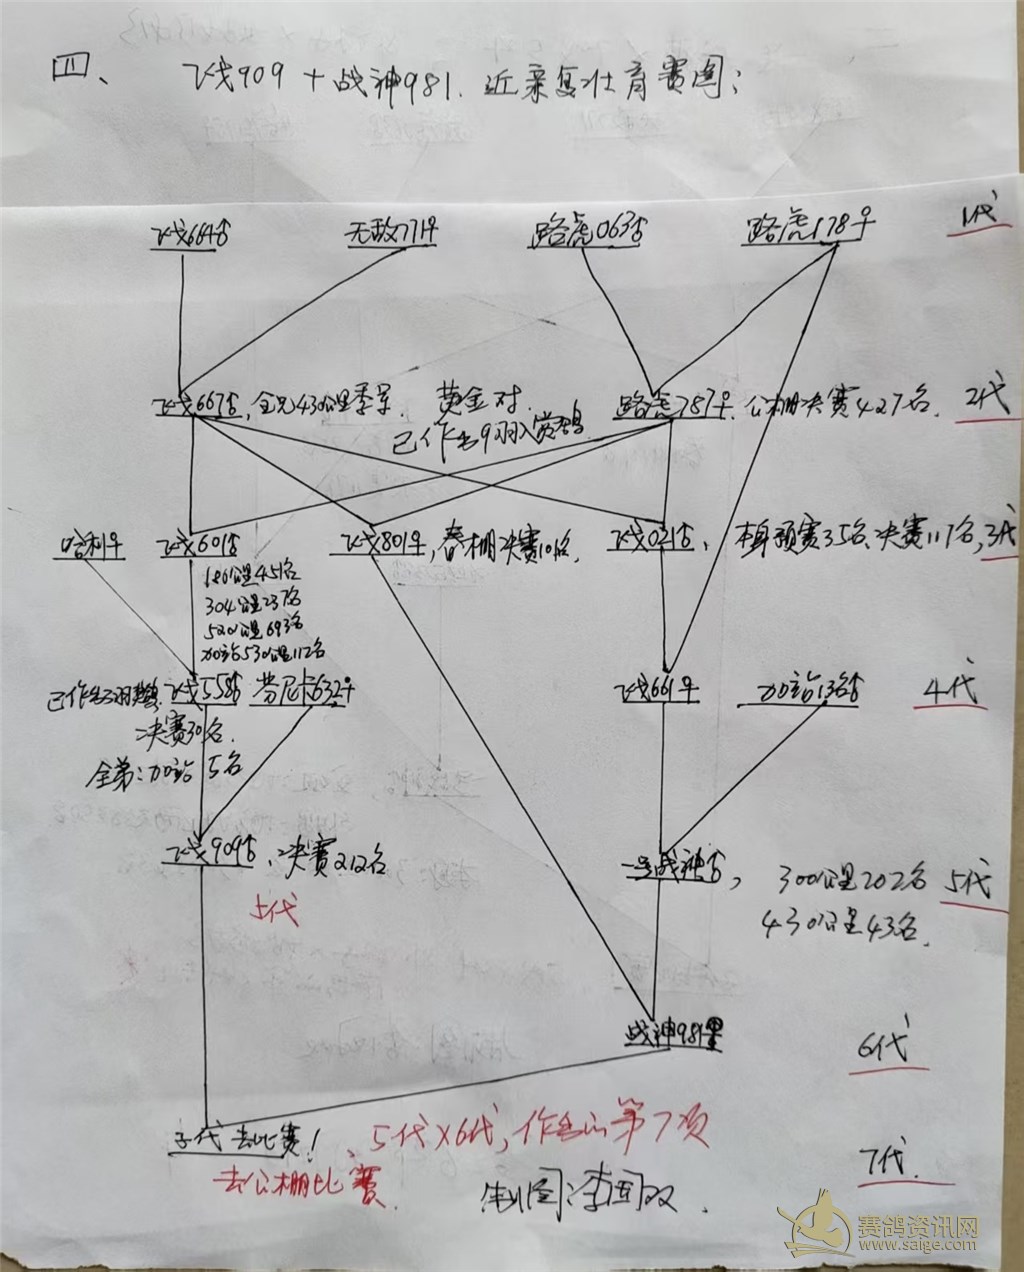 四、 飞戈909+战神981.近亲复壮育赛图:
飞戈664♂ 无敌771♀ 路虎063♂ 路虎178♀ 1代
飞戈667♂,全兄430公里季军. 黄金对. 路虎787♀.公棚决赛427名. 2代
已作出9羽入赏鸽
哈利♀ 飞戈601♂ 飞戈801♀,春棚决赛101名. 飞戈021♂、 本身预赛35名、决赛117名, 3代
180公里451名
304公里237名
520公里693名
加站530公里112名
飞戈558♂ 芬尼卡632♀ 飞戈661♀ 加站13名♂ 4代
决赛30名.
全弟:加站5名
飞戈909♂、决赛212名 一号战神♂, 300公里202名 5代
5代 430公里43名.
战神981 6代
子代去比赛! 、5代×6代,作出的第7项 7代.
去公棚比赛.
制图:李国双.
赛鸽资讯网
www.saige.com